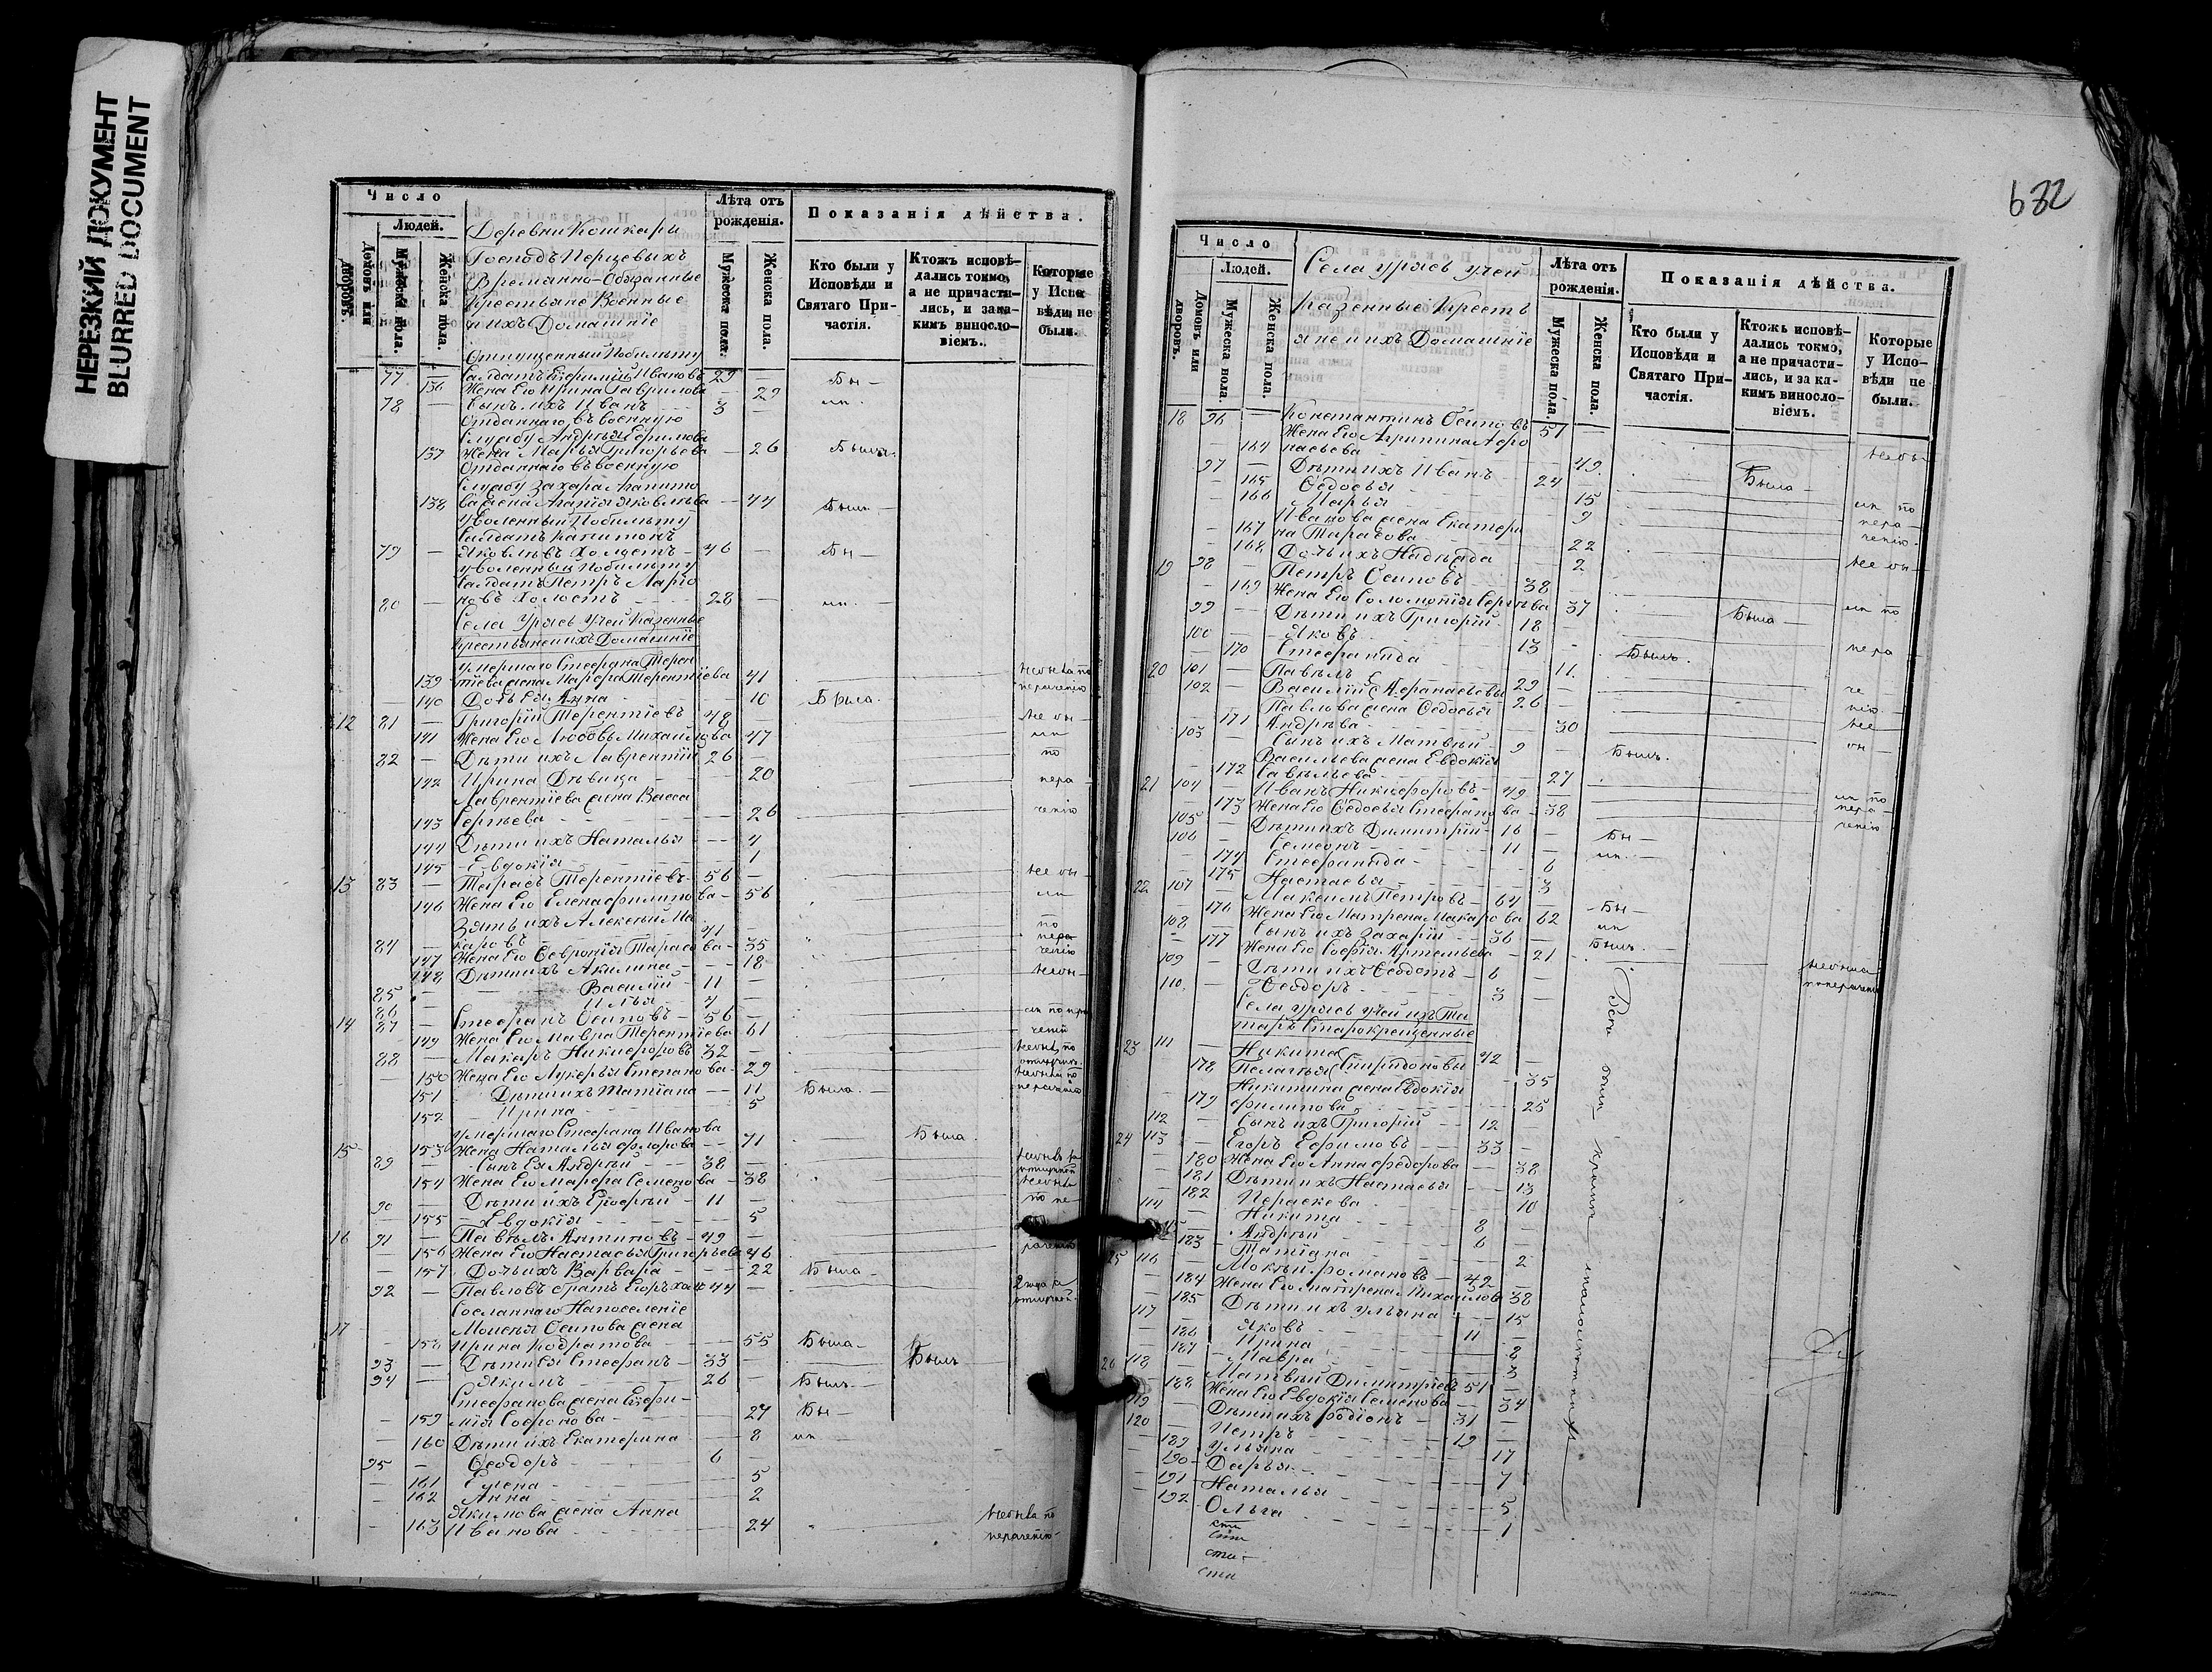 НЕРЕЗКИЙ ДОКУМЕНТ
BLURRED DOCUMENT
Число
Людей.
Домовъ или дворовъ.
Мужеска пола.
Женска пола.
Деревни Кошкары
Господъ Перцевыхъ
Временно-Обязанные
Крестьяне Военные
и ихъ Домашніе
Лѣта отъ рожденія.
Мужеска пола.
Женска пола.
Показанія дѣйства.
Кто были у Исповѣди и Святаго Причастія.
Ктожъ исповѣдались токмо, а не причастились, и за какимъ винословіемъ.
Которые у Исповѣди не были.
Отпущенный Побилъту
77 — Салдатъ Ефимій Ивановъ 29 — Бы—
136 Жена Его Ирина Гаврилова — 29
78 — Сынъ ихъ Иванъ 3 — ли.
Отданнаго въ военную
Службу Андрея Ефимова
137 Жена Марья Григорьева — 26 Была.
Отданнаго въ военную
Службу Захара
138 жена Агапія Яковлева — 44 Была —
Уволенный Побилъту
Салдатъ Капитонъ
79 — Яковлевъ Холостъ — 46 — Бы—
Уволенный Побилъту
Салдатъ Петръ Ларіо
80 — новъ Холостъ 28 — ли.
Села Урясь Учей Казенные
Крестьяне и ихъ Домашніе
Умершаго Стефана Терен
139 тіева жена Марфа Терентіева 41 небыла по
140 Дочь Ея Анна 10 Была. нерачению
12 81 — Григорій Терентіевъ 48 — не бы—
141 Жена Его Любовь Михайлова 47 ли
82 — Дѣти ихъ Лаврентій 26 — по
142 Ирина Дѣвица — 20 нера
Лаврентіева жена Васса
143 Сергѣева — 26 ченію
144 Дѣти ихъ Наталья — 4
145 — Евдокія — 1
13 83 — Тарасъ Терентіевъ 56 — не бы—
146 Жена Его Елена Филипова — 56 ли
Зять ихъ Алексѣй Ма
84 — каровъ 41 — по
147 Жена Его Февронія Тарасова — 35 нера
148 Дѣти ихъ Акилина — 18 ченію
85 — Василій — 11 — небы—
86 — Илья — 4 —
14 87 — Стефанъ Осиповъ — 56 — ли по нера
149 Жена Его Мавра Терентіева 61 ченію
88 — Макаръ Никифоровъ 32 — небылъ по
150 Жена Его Лукерья Степанова — 29 небыла по
151 Дѣти ихъ Татіана — 11 Была. нерачению
152 — Ирина — 5
Умершаго Стефана Иванова
15 153 Жена Наталья Флорова — 71 Была.
89 — Сынъ Ея Андрей — 38 — небылъ за
154 Жена Его Марфа Семенова — 38 небыла
90 — Дѣти ихъ Ерофей — 11 по не
155 — Евдокія — 5
16 91 — Павелъ Антиповъ — 49 —
— 156 Жена Его Настасья Григорьева 46 рачению
— 157 Дочь ихъ Варвара — 22 Была —
92 — Павловъ братъ Егоръ 44 — 2 года за
Сосланнаго Напоселеніе
17 Моисея Осипова жена
— 158 Ирина Кодратова — 55 Была —
93 — Дѣти Ея Стефанъ — 33 — Былъ
94 — Якимъ — 26 — Былъ —
Стефанова жена Ефи-
— 159 мія Софонова — 27 Бы—
— 160 Дѣти ихъ Екатерина — 8 ли —
95 — Ѳеодоръ — 6
— 161 Елена — 5
— 162 Анна — 2
Якимова жена Анна
— 163 Иванова — 24 небыла по
нерачению
682
Число
Людей.
Домовъ или дворовъ.
Мужеска пола.
Женска пола.
Села Урясь Учей
Казенные Кресть
яне и ихъ Домашніе
Лѣта отъ рожденія.
Мужеска пола.
Женска пола.
Показанія дѣйства.
Кто были у Исповѣди и Святаго Причастія.
Ктожъ исповѣдались токмо, а не причастились, и за какимъ винословіемъ.
Которые у Исповѣди не были.
18 96 — Константинъ Осиповъ 51 —
Жена Его Агрипина Афо
— 164 насьева — 49. небы—
97 — Дѣти ихъ Иванъ 24 —
— 165 Ѳедосья — 15 Была —
— 166 Марья — 9 ли по
Иванова жена Екатери нера—
— 167 на Тарасова — 22 ченію.
— 168 Дочь ихъ Надежда — 2
19 98 — Петръ Осиповъ — 38 не бы—
— 169 Жена Его Соломонія Сергѣева 37
99 — Дѣти ихъ Григорій 18 Была — ли по
100 — Яковъ — 13
— 170 Стефанида — 11. Былъ. нера
20 101 — Павелъ 29 —
102 — Василій Афанасьевы 26 — че
Павлова жена Ѳедосья нію.
171 Андрѣева — 30 не
103 — Сынъ ихъ Матвей — 9 — Былъ. бы —
Васильева жена Евдокія
172 Савельева — 27
21 104 — Иванъ Никифоровъ — 49 — ли по
173 Жена Его Ѳедосья Стефанова — 38 нера
105 — Дѣти ихъ Димитрій — 16 — Бы — ченію
106 — Семеонъ — 11 — ли. —
— 174 Стефанида — 6
— 175 Настасья — 3
22 107 — Максимъ Петровъ — 64 — Бы —
— 176 Жена Его Матрена Макарова 62 ли
108 — Сынъ ихъ Захарій — 36 — Былъ. —
— 177 Жена Его Софія Артемьева — 21 небыла
109 — Дѣти ихъ Ѳедотъ — 6 —
110. — Ѳеодоръ — 3 —
Села Урясь Учей изъ Та
таръ Старокрещенные
23 111 — Никита 42 —
178 Пелагея Спиридоновы — 35
Никитина жена Евдокія
— 179 Филипова — 25
112 — Сынъ ихъ Григорій — 12 —
24 113 — Егоръ Ефимовъ — 33 —
— 180 Жена Его Анна Федорова — 38
— 181 Дѣти ихъ Настасья — 13
— 182 Пераскева — 10
114 — Никита — 8 —
115 — Андрей — 6 —
— 183 — Татіана — 2
25 116 — Мокѣй Романовъ — 42 —
— 184 Жена Его Матрена Михайлова 38
— 185 Дѣти ихъ Ульяна — 15
117 — Яковъ — 11 —
— 186 Ирина — 8
— 187 — Мавра — 3
26 118 — Матвей Димитріевъ 51 —
— 188 Жена Его Евдокія Семенова — 54
119 — Дѣти ихъ Родіонъ — 31 —
120 — Петръ — 19 —
— 189 Ульяна — 17
— 190 — Дарья — 7
— 191 — Наталья — 5
— 192 — Ольга — 1
Всѣ были кромѣ малолѣтнихъ